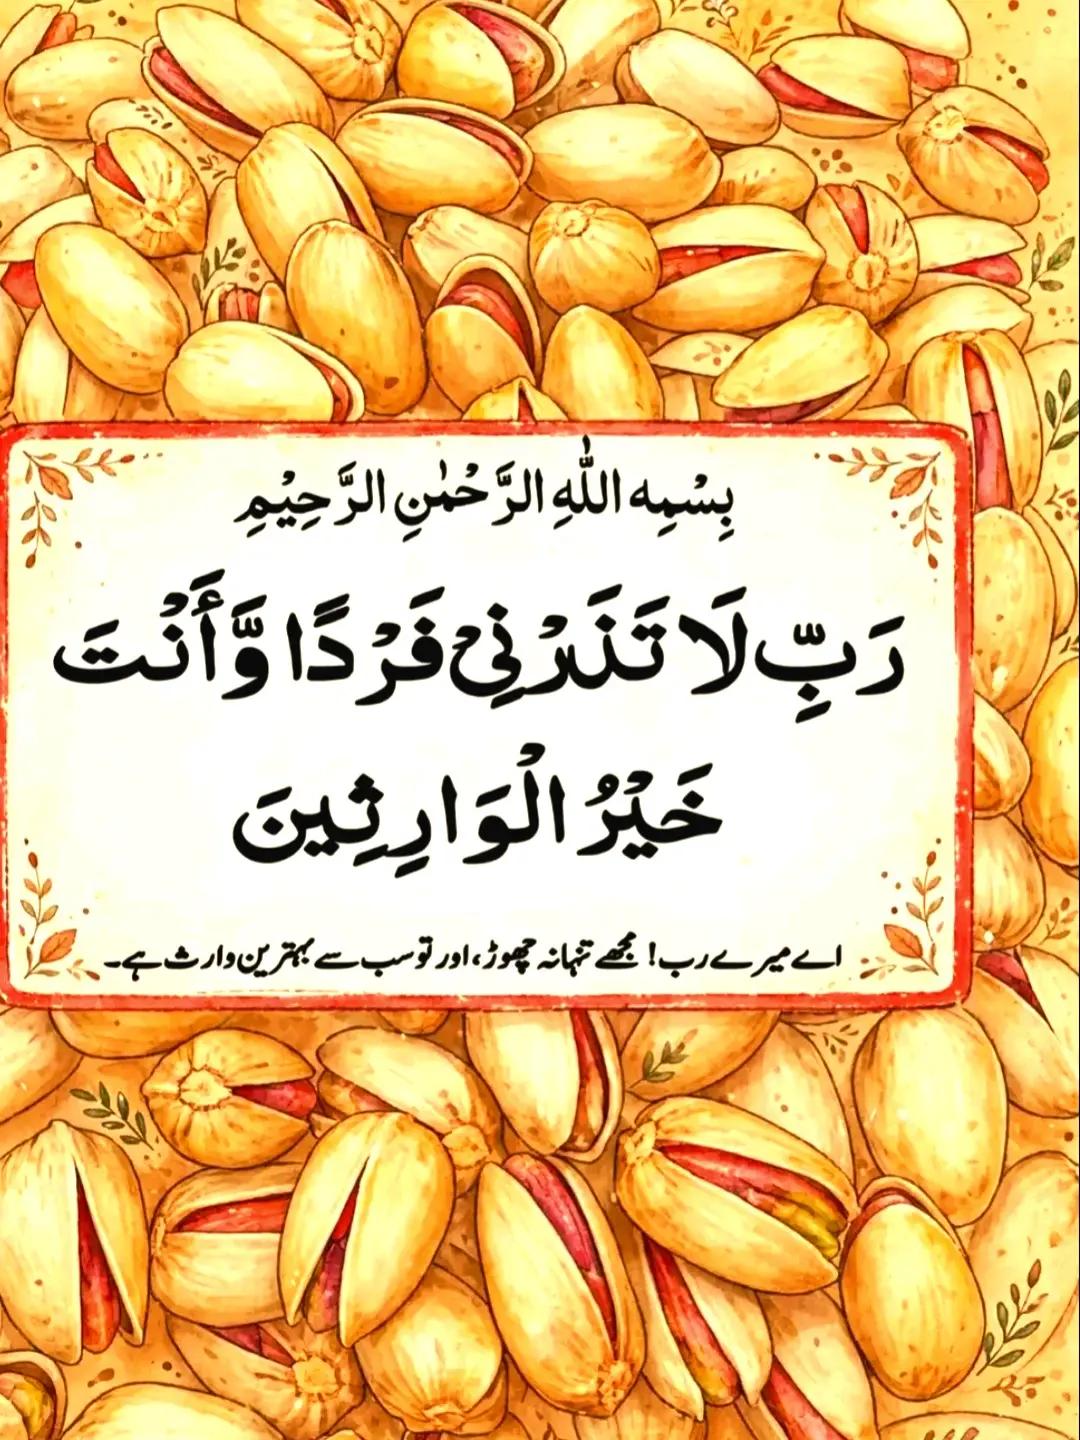 بِسْمِهِ اللّٰهِ الرَّحْمٰنِ الرَّحِيْمِ
رَبِّ لَا تَذَرْنِيْ فَرْدًا وَّأَنْتَ
خَيْرُ الْوَارِثِينَ
اے میرے رب! مجھے تنہا نہ چھوڑ، اور تو سب سے بہترین وارث ہے۔